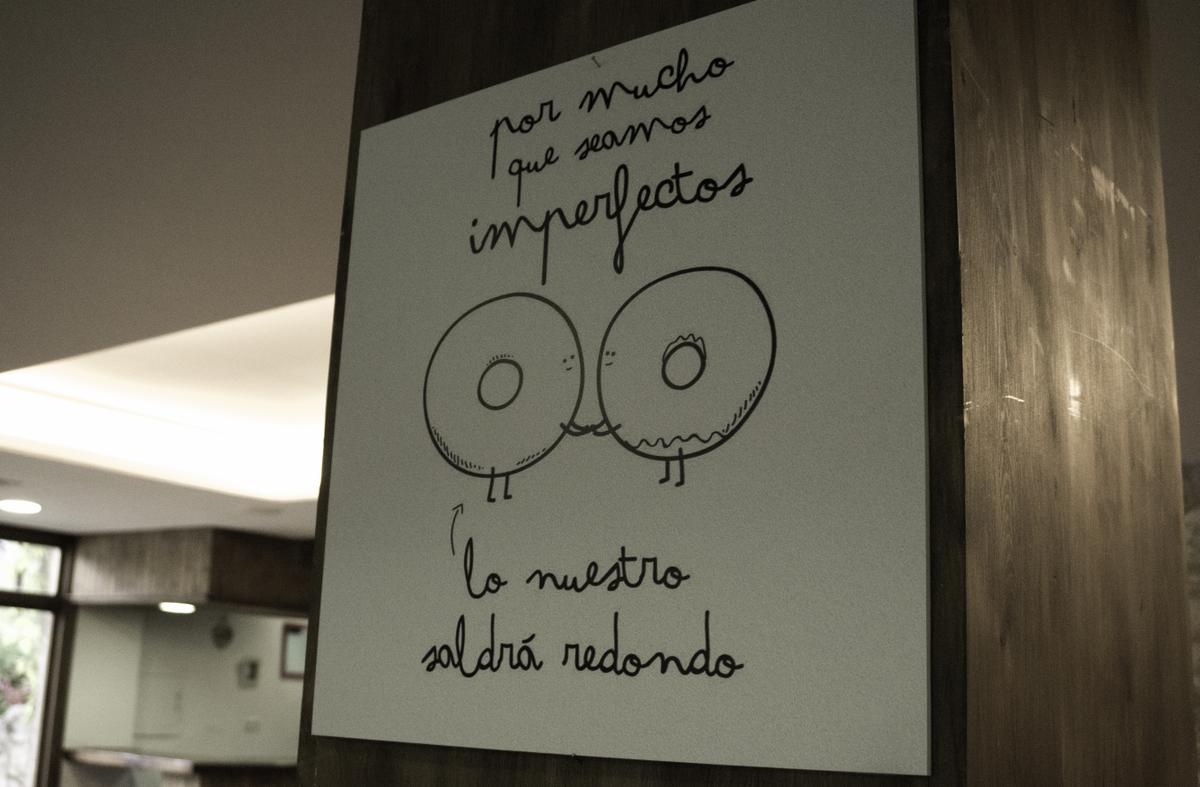 por mucho
que seamos
imperfectos
lo nuestro
saldrá redondo